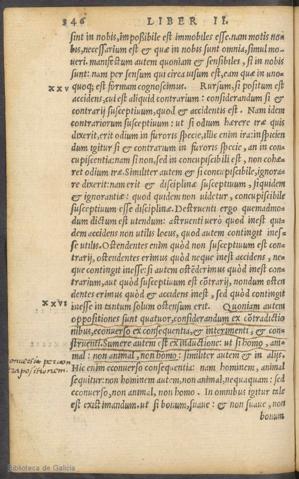 346 LIBER II.
sint in nobis, impoßibile est immobiles esse. nam motis no-
bis, necessarium est & quæ in nobis sunt omnia, simul mo-
ueri. manifestum autem quoniam & sensibiles, si in nobis
sunt: nam per sensum qui circa uisum est, eam quæ in uno-
XXV quoq; est formam cognoscimus. Rursum, si positum est
accidens, cui est aliquid contrarium: considerandum si &
contrarij susceptiuum, quod & accidentis est. Nam idem
contrariorum susceptiuum: ut si odium hærere iræ quis
dixerit, erit odium in furoris specie, illic enim ira: inspicien
dum igitur si & contrarium in furoris specie, an in concu-
piscentia: nam si non, sed in concupiscibili est, non cohæ-
ret odium iræ. Similiter autem & si concupiscibile, ignora-
re dixerit: nam erit & disciplinæ susceptiuum, siquidem
& ignorantiæ: quod quidem non uidetur, concupiscibile
susceptiuum esse disciplinæ. Destruenti ergo quemadmo-
dum dictum est utendum: astruenti uerò quod inest qui-
dem accidens non utilis locus, quod autem contingit ines-
se utilis. Ostendentes enim quòd non susceptiuum est con-
trarij, ostendentes erimus quòd neque inest accidens, ne-
que contingit inesse: si autem ostēderimus quòd inest con-
trarium, aut quòd susceptiuum est cōtrarij, nondum osten
dentes erimus quòd & accidens inest, sed quòd contingit
XXVI inesse in tantum solum ostensum erit. Quoniam autem
oppositiones sunt quatuor, considerandum ex cōtradictio
nibus, econuerso ex consequentia, & interimenti, & con-
struenti. Sumere autem est ex inductione: ut si homo, ani-
mal: non animal, non homo: similiter autem & in alijs.
Hic enim econuerso consequentia: nam hominem, animal
sequitur: non hominem autem, non animal, nequaquam: sed
econuerso, non animal, non homo. In omnibus igitur tale
est existimandum. ut si bonum, suaue: & non suaue, non
bonum
Biblioteca de Galicia